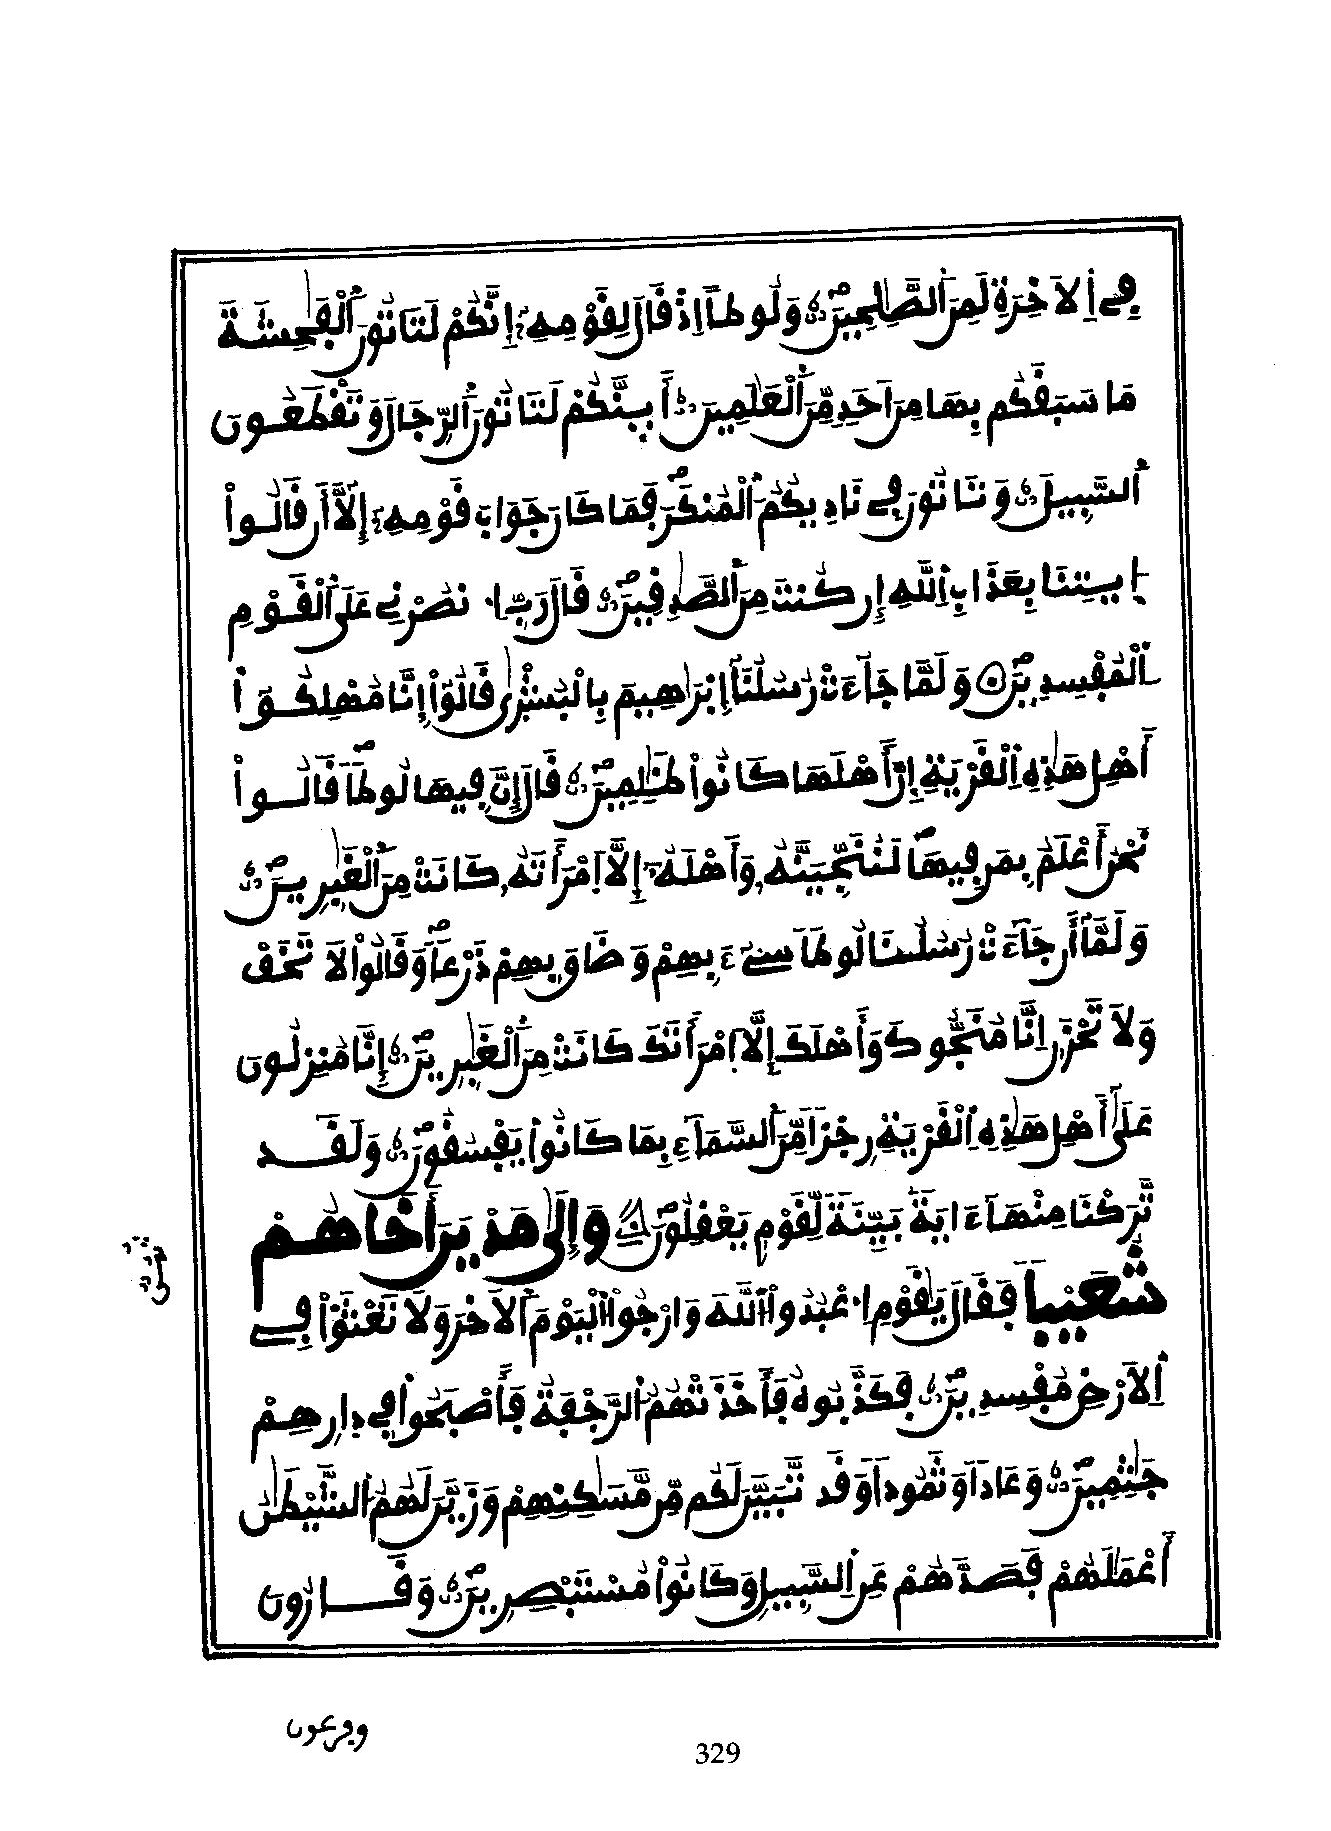 فِي اِلَاخِرَةِ لَمِنَ اَلصَّٰلِحِينَۖ وَلُوطاً اِذْ قَالَ لِقَوْمِهِۦٓ إِنَّكُمْ لَتَاتُونَ اَلْفَٰحِشَةَ
مَا سَبَقَكُم بِهَا مِنَ اَحَدٖ مِّنَ اَلْعَٰلَمِينَ أَىِٕنَّكُمْ لَتَاتُونَ اَلرِّجَالَ وَتَقْطَعُونَ
اَلسَّبِيلَ وَتَاتُونَ فِي نَادِيكُمُ اُلْمُنكَرَۖ فَمَا كَانَ جَوَابَ قَوْمِهِۦٓ إِلَّآ أَن قَالُواْ
اُ يتِنَا بِعَذَابِ اِللَّهِ إِن كُنتَ مِنَ اَلصَّٰدِقِينَۖ قَالَ رَبِّ اِ نصُرْنِي عَلَى اَلْقَوْمِ
اِلْمُفْسِدِينَۖ وَلَمَّا جَآءَتْ رُسُلُنَآ إِبْرَٰهِيمَ بِالْبُشْرَىٰ قَالُوٓاْ إِنَّا مُهْلِكُوٓاْ
أَهْلِ هَٰذِهِ اِلْقَرْيَةِ إِنَّ أَهْلَهَا كَانُواْ ظَٰلِمِينَۖ قَالَ إِنَّ فِيهَا لُوطاًۖ قَالُواْ
نَحْنُ أَعْلَمُ بِمَن فِيهَاۖ لَنُنَجِّيَنَّهُۥ وَأَهْلَهُۥٓ إِلَّا اَمْرَأَتَهُۥ كَانَتْ مِنَ اَلْغَٰبِرِينَۖ
وَلَمَّآ أَن جَآءَتْ رُسُلُنَا لُوطاً سِيٓءَ بِهِمْ وَضَاقَ بِهِمْ ذَرْعاًۖ وَقَالُواْ لَا تَخَفْ
وَلَا تَحْزَنِ اِنَّا مُنَجُّوكَ وَأَهْلَكَ إِلَّا اَمْرَأَتَكَ كَانَتْ مِنَ اَلْغَٰبِرِينَۖ إِنَّا مُنزِلُونَ
عَلَىٰٓ أَهْلِ هَٰذِهِ اِلْقَرْيَةِ رِجْزاً مِّنَ اَلسَّمَآءِ بِمَا كَانُواْ يَفْسُقُونَۖ وَلَقَد
تَّرَكْنَا مِنْهَآ ءَايَةَۢ بَيِّنَةٗ لِّقَوْمٖ يَعْقِلُونَۖ وَإِلَىٰ مَدْيَنَ أَخَاهُمْ
شُعَيْباً فَقَالَ يَٰقَوْمِ اِ عْبُدُواْ اُللَّهَ وَارْجُواْ اُلْيَوْمَ اَلَاخِرَ وَلَا تَعْثَوْاْ فِي
اِلَارْضِ مُفْسِدِينَۖ فَكَذَّبُوهُ فَأَخَذَتْهُمُ اُلرَّجْفَةُ فَأَصْبَحُواْ فِي دِارِهِمْ
جَٰثِمِينَۖ وَعَاداً وَثَمُوداً وَقَد تَّبَيَّنَ لَكُم مِّن مَّسَٰكِنِهِمْ وَزَيَّنَ لَهُمُ اُلشَّيْطَٰنُ
أَعْمَٰلَهُمْ فَصَدَّهُمْ عَنِ اِلسَّبِيلِ وَكَانُواْ مُسْتَبْصِرِينَۖ وَقَٰرُونَ
ثمن
وفرعون
329